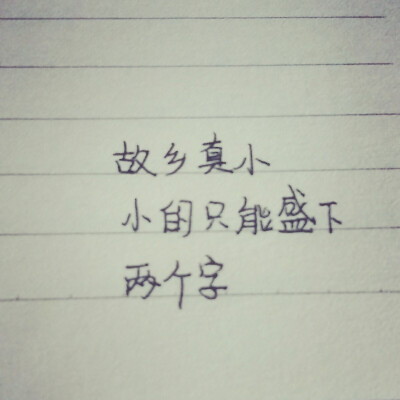 故乡真小
小的只能盛下
两个字